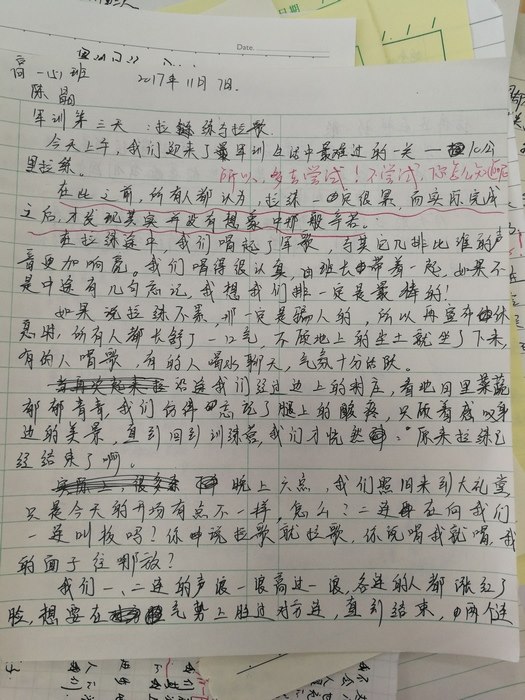 Date.
高一(1)班
2017年11月7日.
陈
军训第三天：拉练与拉歌
今天上午，我们迎来了军训生活中最难过的一关——10公
里拉练。
所以，多去尝试！不尝试，你怎么知道呢
在此之前，所有人都认为，拉练一定很累，而实际完成
之后，才发现其实并没有想象中那般辛苦。
在拉练途中，我们唱起了军歌，与其它几排比谁的声
音更加响亮。我们唱得很认真，由班长带着一起，如果不
是中途有几句忘记，我想我们排一定是最棒的！
如果说拉练不累，那一定是骗人的，所以再宣布休
息时，所有人都长舒了一口气，不顾地上的尘土就坐了下来，
有的人唱歌，有的人喝水聊天，气氛十分活跃。
沿途我们经过边上的村庄，看地田里菜蔬
郁郁青青，我们仿佛忘记了腿上的酸疼，只顾着感叹身
边的美景，直到回到训练营，我们才恍然：原来拉练已
经结束了啊。
晚上六点，我们照旧来到大礼堂
只是今天的开场有点不一样，怎么？二连在向我们
一连叫板吗？你说拉歌就拉歌，你说唱我就唱，我
的面子往哪放？
我们一、二连的声浪一浪高过一浪，各连的人都涨红了
脸，想要在气势上胜过对方连，直到结束，两个连